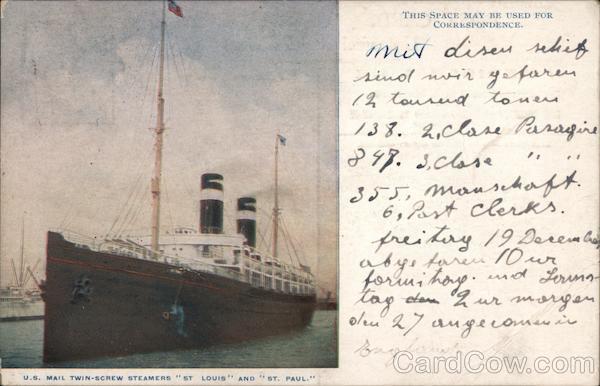 THIS SPACE MAY BE USED FOR
CORRESPONDENCE.
Mit disen schif
sind wir gefaren
12 tausend tonen
138. 2, Clase Pasagire
847. 3, Clase " "
355, Manschaft.
6, Post Clerks.
freitag 19 December
abgefaren 10 ur
formitag. und
tag den 2 ur morgen
den 27 angecomen
U.S. MAIL TWIN-SCREW STEAMERS "ST LOUIS" AND "ST. PAUL."
© CardCow.com